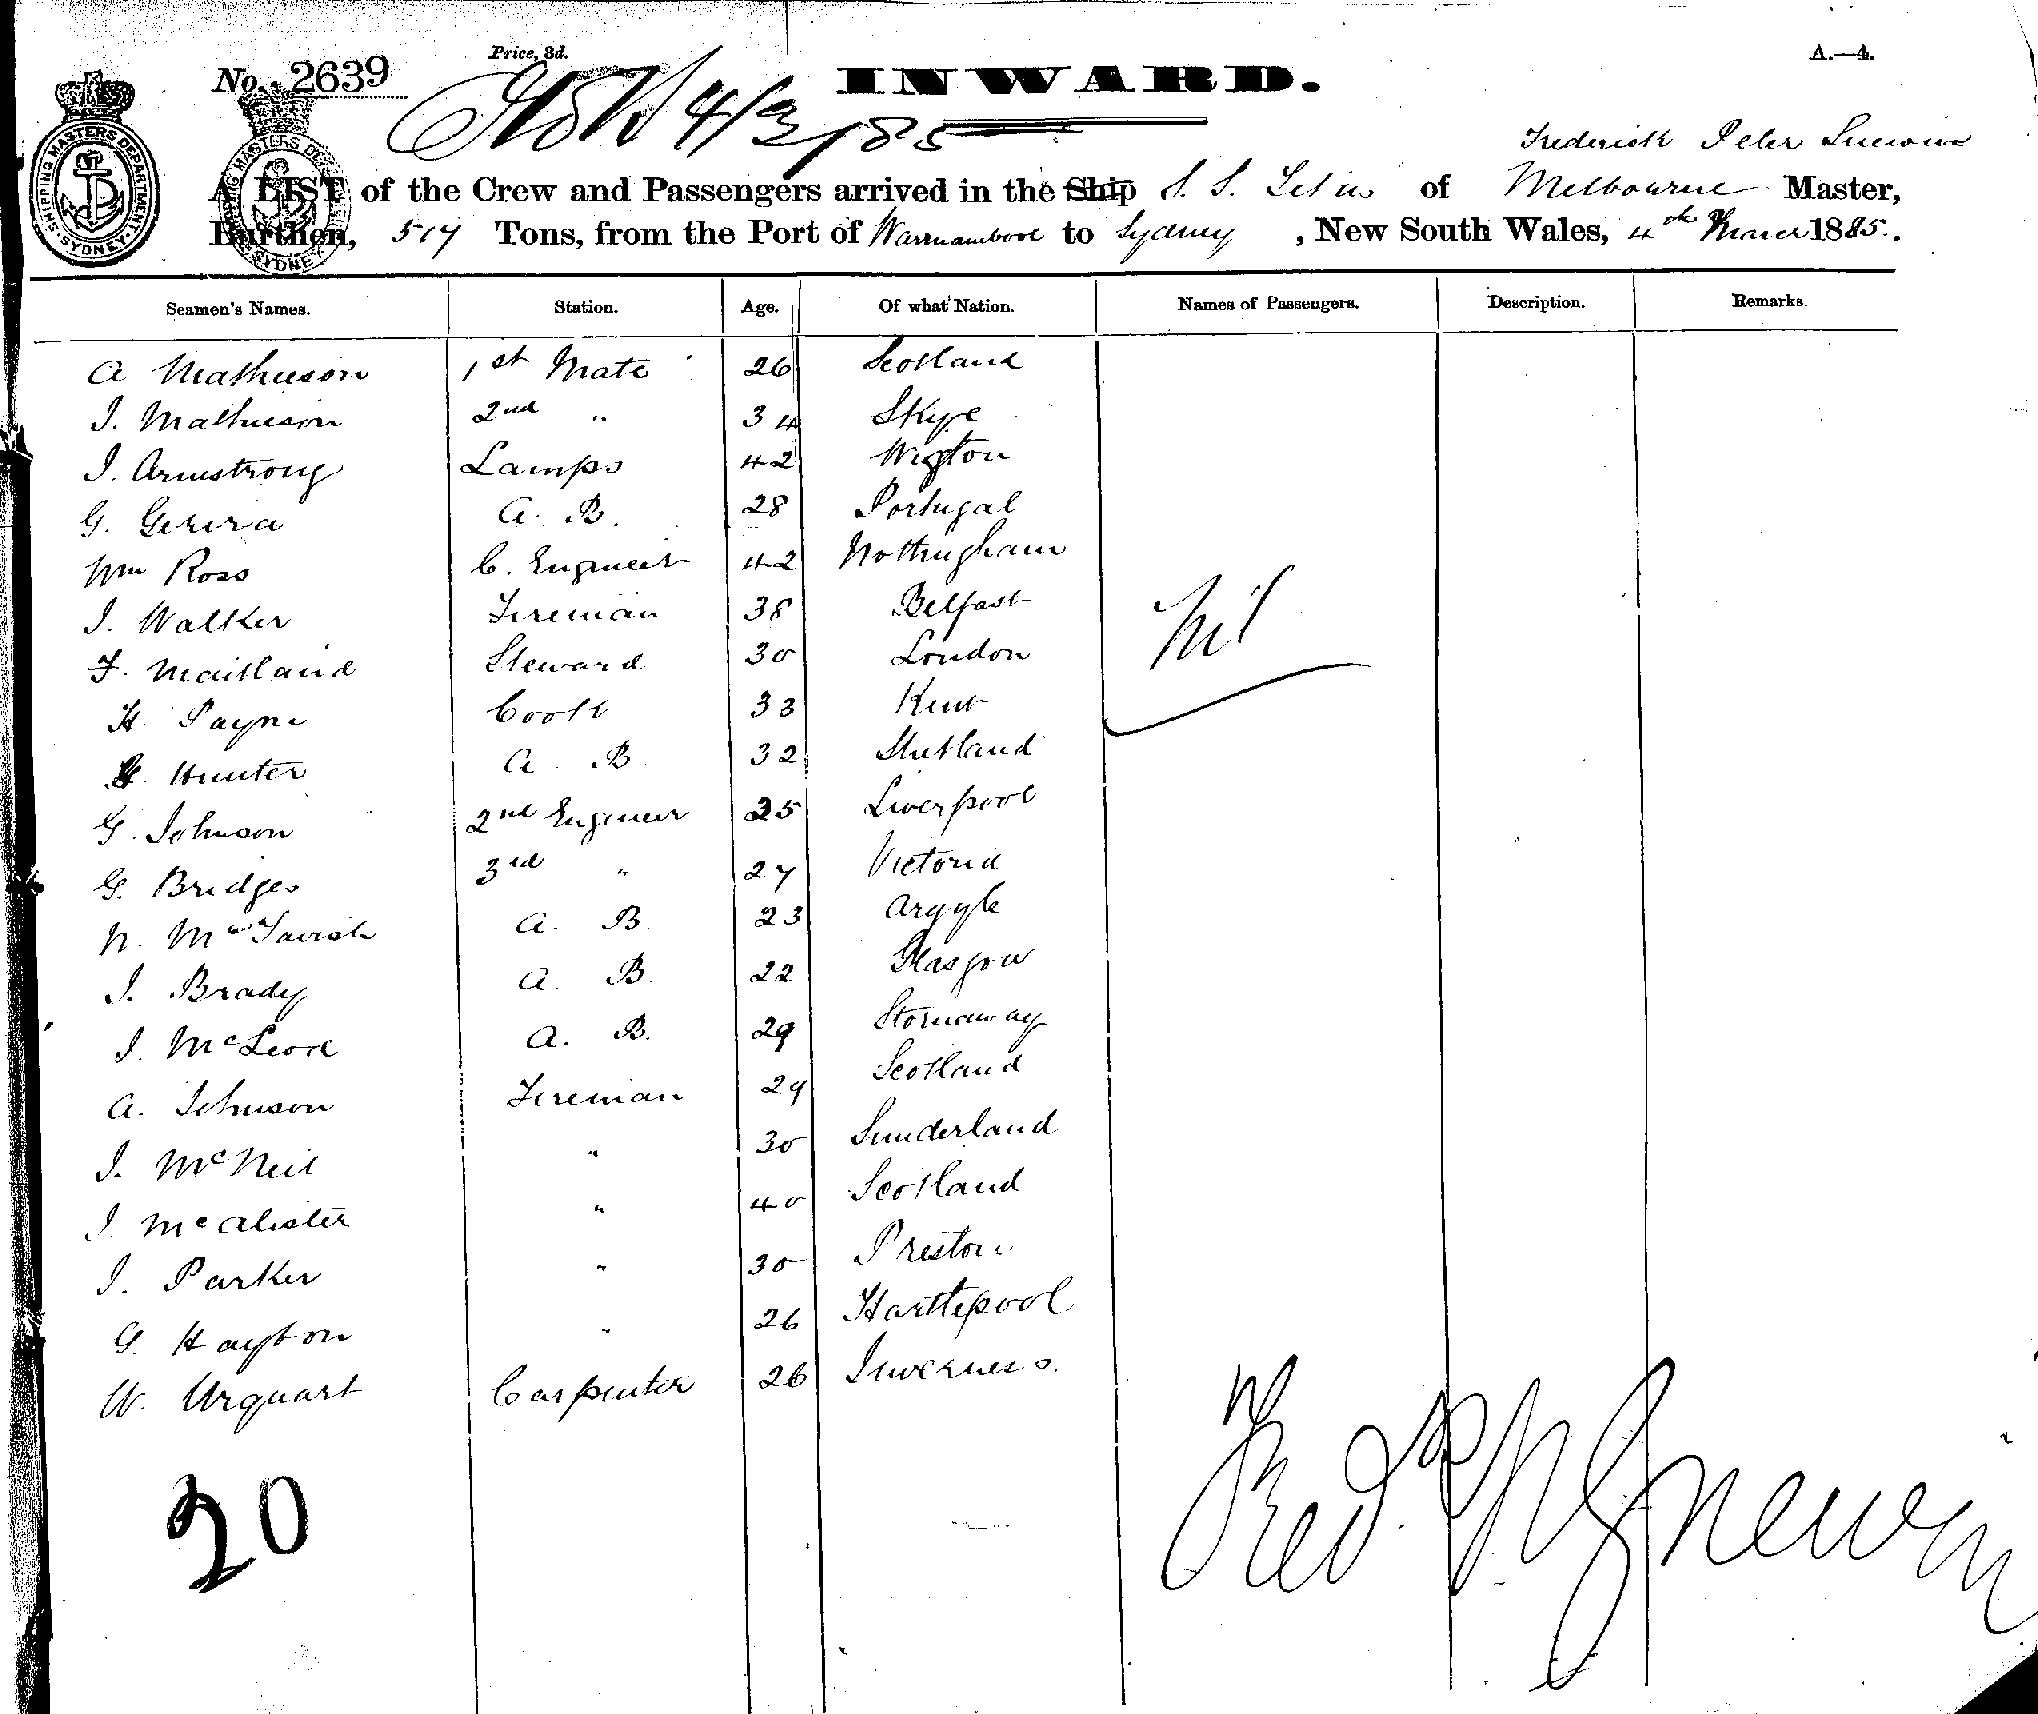 Price, 3d.
A.—4.
No. 2639
INWARD.
4/3/85
SHIPPING MASTERS DEPARTMENT. SYDNEY
Frederick Peter
A LIST of the Crew and Passengers arrived in the Ship S. S. of Melbourne Master,
Burthen, 517 Tons, from the Port of Warrnambool to Sydney , New South Wales, 4th March 1885.
Seamen's Names. Station. Age. Of what Nation. Names of Passengers. Description. Remarks.
A Mathieson 1st Mate 26 Scotland
J. Mathieson 2nd " 34 Skye
J. Armstrong Lamps 42 Wigton
G. Gerira A. B. 28 Portugal
Wm Ross C. Engineer 42 Nottingham
J. Walker Fireman 38 Belfast
Nil
F. Maitland Steward 30 London
H. Payne Cook 33 Kent
G. Hunter A B 32 Shetland
G. Johnson 2nd Engineer 25 Liverpool
G. Bridges 3rd " 27 Victoria
N. McTavish A. B. 23 Argyle
J. Brady A. B. 22 Glasgow
J. McLeod A. B. 29 Stornaway
A. Johnson Fireman 29 Scotland
J. McNeil " 30 Sunderland
J. McAlister " 40 Scotland
J. Parker " 30 Preston
G. Hayton " 26 Hartlepool
W. Urquart Carpenter 26 Inverness.
20
Fred